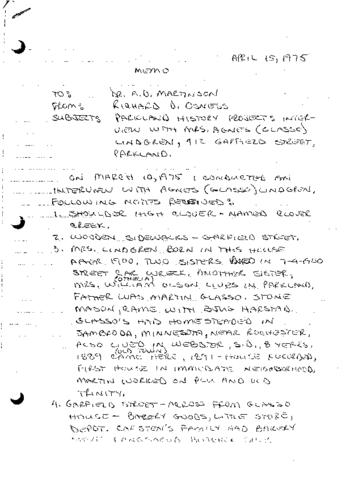 APRIL 15, 1975
MEMO
TO: DR. A.D. MARTINSON
FROM: RICHARD D. OSNESS
SUBJECT: PARKLAND HISTORY PROJECT: INTER-
VIEW WITH MRS. AGNES (GLASSO)
LINDGREN, 912 GARFIELD STREET,
PARKLAND.
ON MARCH 10, 1975 I CONDUCTED AN
INTERVIEW WITH AGNES (GLASSO) LINDGREN,
FOLLOWING NOTES RECEIVED:
1. SHOULDER HIGH CLOVER - NAMED CLOVER
CREEK.
2. WOODEN SIDEWALKS - GARFIELD STREET.
3. MRS. LINDGREN BORN IN THIS HOUSE
1900, TWO SISTERS DIED IN 7-4-1900
STREET CAR WRECK. ANOTHER SISTER,
MRS. WILLIAM OLSON LIVES IN PARKLAND,
FATHER WAS MARTIN GLASSO. STONE
MASON, CAME WITH BJUG HARSTAD.
GLASSO'S HAD HOMESTEADED IN
MINNESOTA, NEAR ROCHESTER,
ALSO LIVED IN WEBSTER, S.D., 8 YEARS.
1889 CAME HERE, 1891 - HOUSE
FIRST HOUSE IN IMMEDIATE NEIGHBORHOOD,
MARTIN WORKED ON PLU AND OLD
TRINITY.
4. GARFIELD STREET - ACROSS FROM GLASSO
HOUSE - BAKERY GOODS, LITTLE STORE,
DEPOT. FAMILY HAD BAKERY